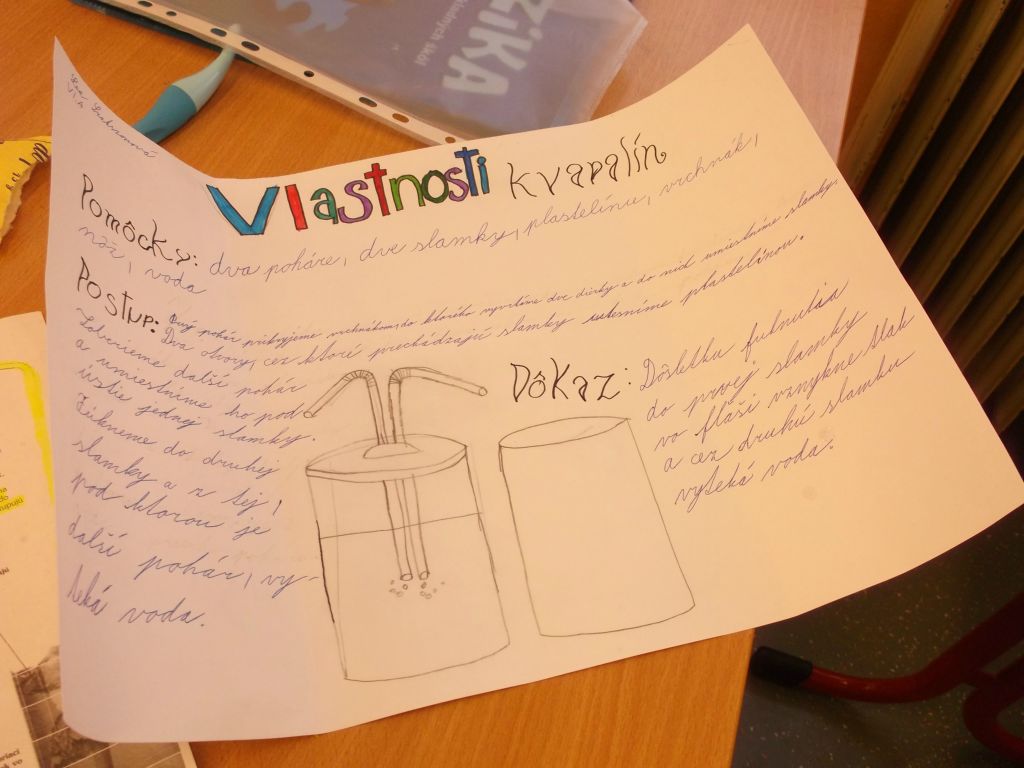 ZIKA
Vlastnosti kvapalín
VI.A
Pomôcky: dva poháre, dve slamky, plastelínu, vrchnák,
nôž, voda
Postup: Prvý pohár prikryjeme vrchnákom, do ktorého vyvrtáme dve dierky a do nich umiestnime slamky.
Dva otvory, cez ktoré prechádzajú slamky utesníme plastelínou.
Zoberieme další pohár
a umiestnime ho pod
ústie jednej slamky.
Fúkneme do druhej
slamky a z tej,
pod ktorou je
další pohár, vy-
teká voda.
Dôkaz: Dôsledku fuknutia
do prvej slamky
vo flaši vznykne tlak
a cez druhú slamku
vyteká voda.